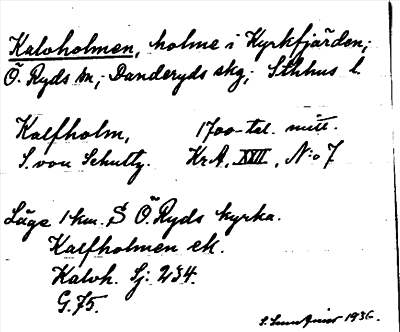 Kalvholmen, holme i Kyrkfjärden;
Ö. Ryds sn; Danderyds skg; Sthhus l.
Kalfholm, 1700-tal. mitt.
S. von Schultz. Kr A, XVII, N:o 7
Läge 1 km. S Ö. Ryds kyrka.
Kalfholmen ek.
Kalvh. Sj: 234.
G. 75.
1936.